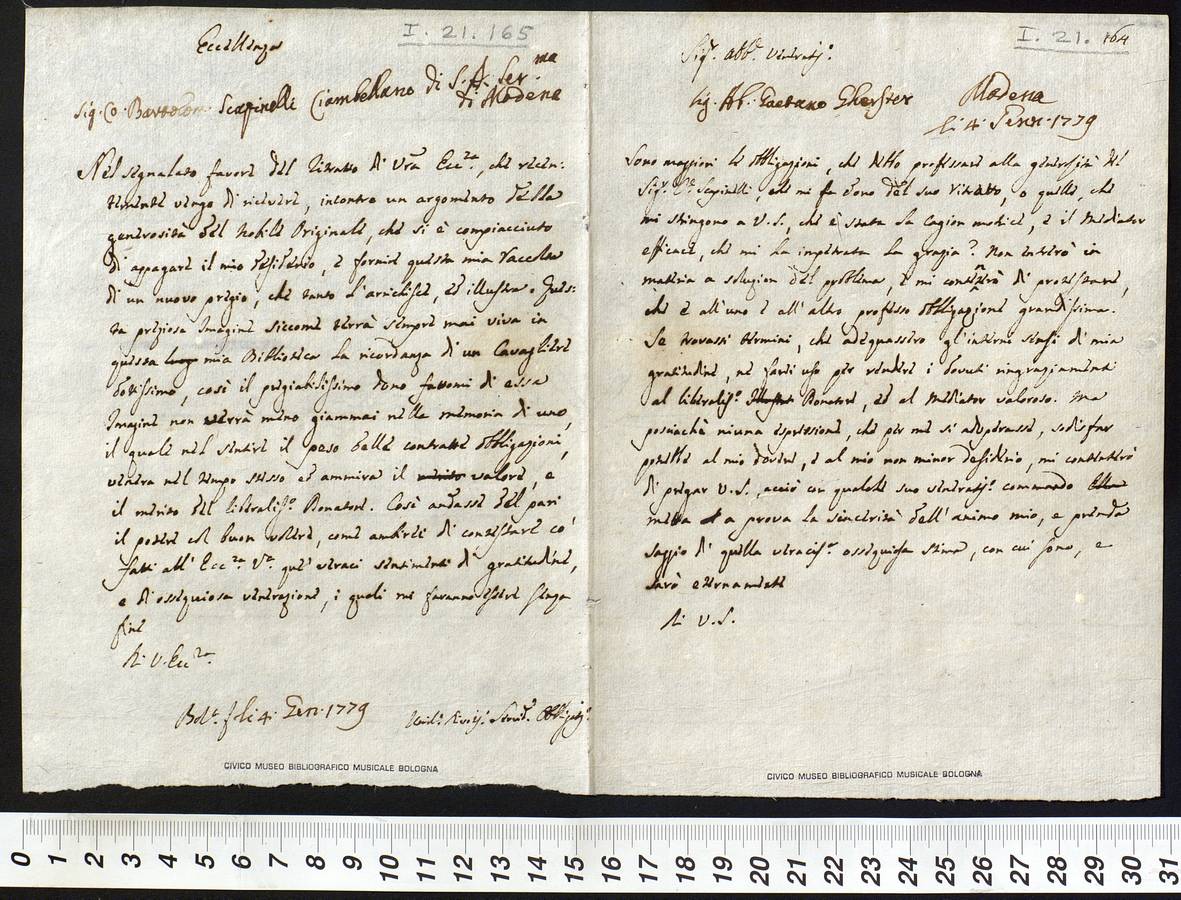 I. 21. 165
Eccellenza
Sig. Co. Bartolom. Scapinelli Ciambellano di S. A. Ser.ma
di Modena
Nel segnalato favore del ritratto di Vra Ecc.za, che recen-
temente vengo di ricevere, incontro un argomento della
generosità del nobile Originale, che si è compiacciuto
di appagare il mio desiderio, e fornir questa mia raccolta
di un nuovo pregio, che tanto l'arrichisce, ed illustra. Ques-
ta preziosa Imagine siccome terrà sempre mai viva in
questa mia Biblioteca la ricordanza di un Cavagliere
dottissimo, così il pregiabilissimo dono fattomi di essa
Imagine non verrà meno giammai nella memoria di uno,
il quale nel sentire il peso delle contratte obbligazioni,
venera nel tempo stesso ed ammira il merito valore, e
il merito del liberaliss.o Donatore. Così andasse del pari
il potere col buon volere, come ambirei di contestare co'
fatti all' Ecc.za V.a que' veraci sentimenti di gratitudine,
e di ossequiosa venerazione, i quali mi faranno essere senza
fine
Di V. Ecc.za
Bol.a li 4. Gen. 1779
CIVICO MUSEO BIBLIOGRAFICO MUSICALE BOLOGNA
I. 21. 164
Sig.r abb.e
Sig. Ab. Gaetano Modena
li 4. Genn. 1779
Sono maggiori le obbligazioni, che debbo professare alla generosità del
Sig.r C.e Scapinelli, che mi fa dono del suo ritratto, o quelle, che
mi stringono a V. S., che è stata la cagion motrice, e il mediator
efficace, che mi ha impetrata la grazia? Non entrerò in
materia a soluzion del problema, e mi contenterò di protestare,
che e all'uno e all'altro professo obbligazioni grandissime.
Se trovassi termini, che adequassero gl'interni sensi di mia
gratitudine, ne farei uso per rendere i dovuti ringraziamenti
al liberaliss.o Donatore, ed al mediator valoroso. Ma
posciachè niuna espressione, che per me si adoperasse, sodisfar
potrebbe al mio dovere, e al mio non minor desiderio, mi contenterò
di pregar V. S., acciò con qualche suo veneratiss.o commando
metta a prova la sincerità dell'animo mio, e prenda
saggio di quella veraciss.a ossequiosa stima, con cui sono, e
sarò eternamente
Di V. S.
CIVICO MUSEO BIBLIOGRAFICO MUSICALE BOLOGNA
0 1 2 3 4 5 6 7 8 9 10 11 12 13 14 15 16 17 18 19 20 21 22 23 24 25 26 27 28 29 30 31